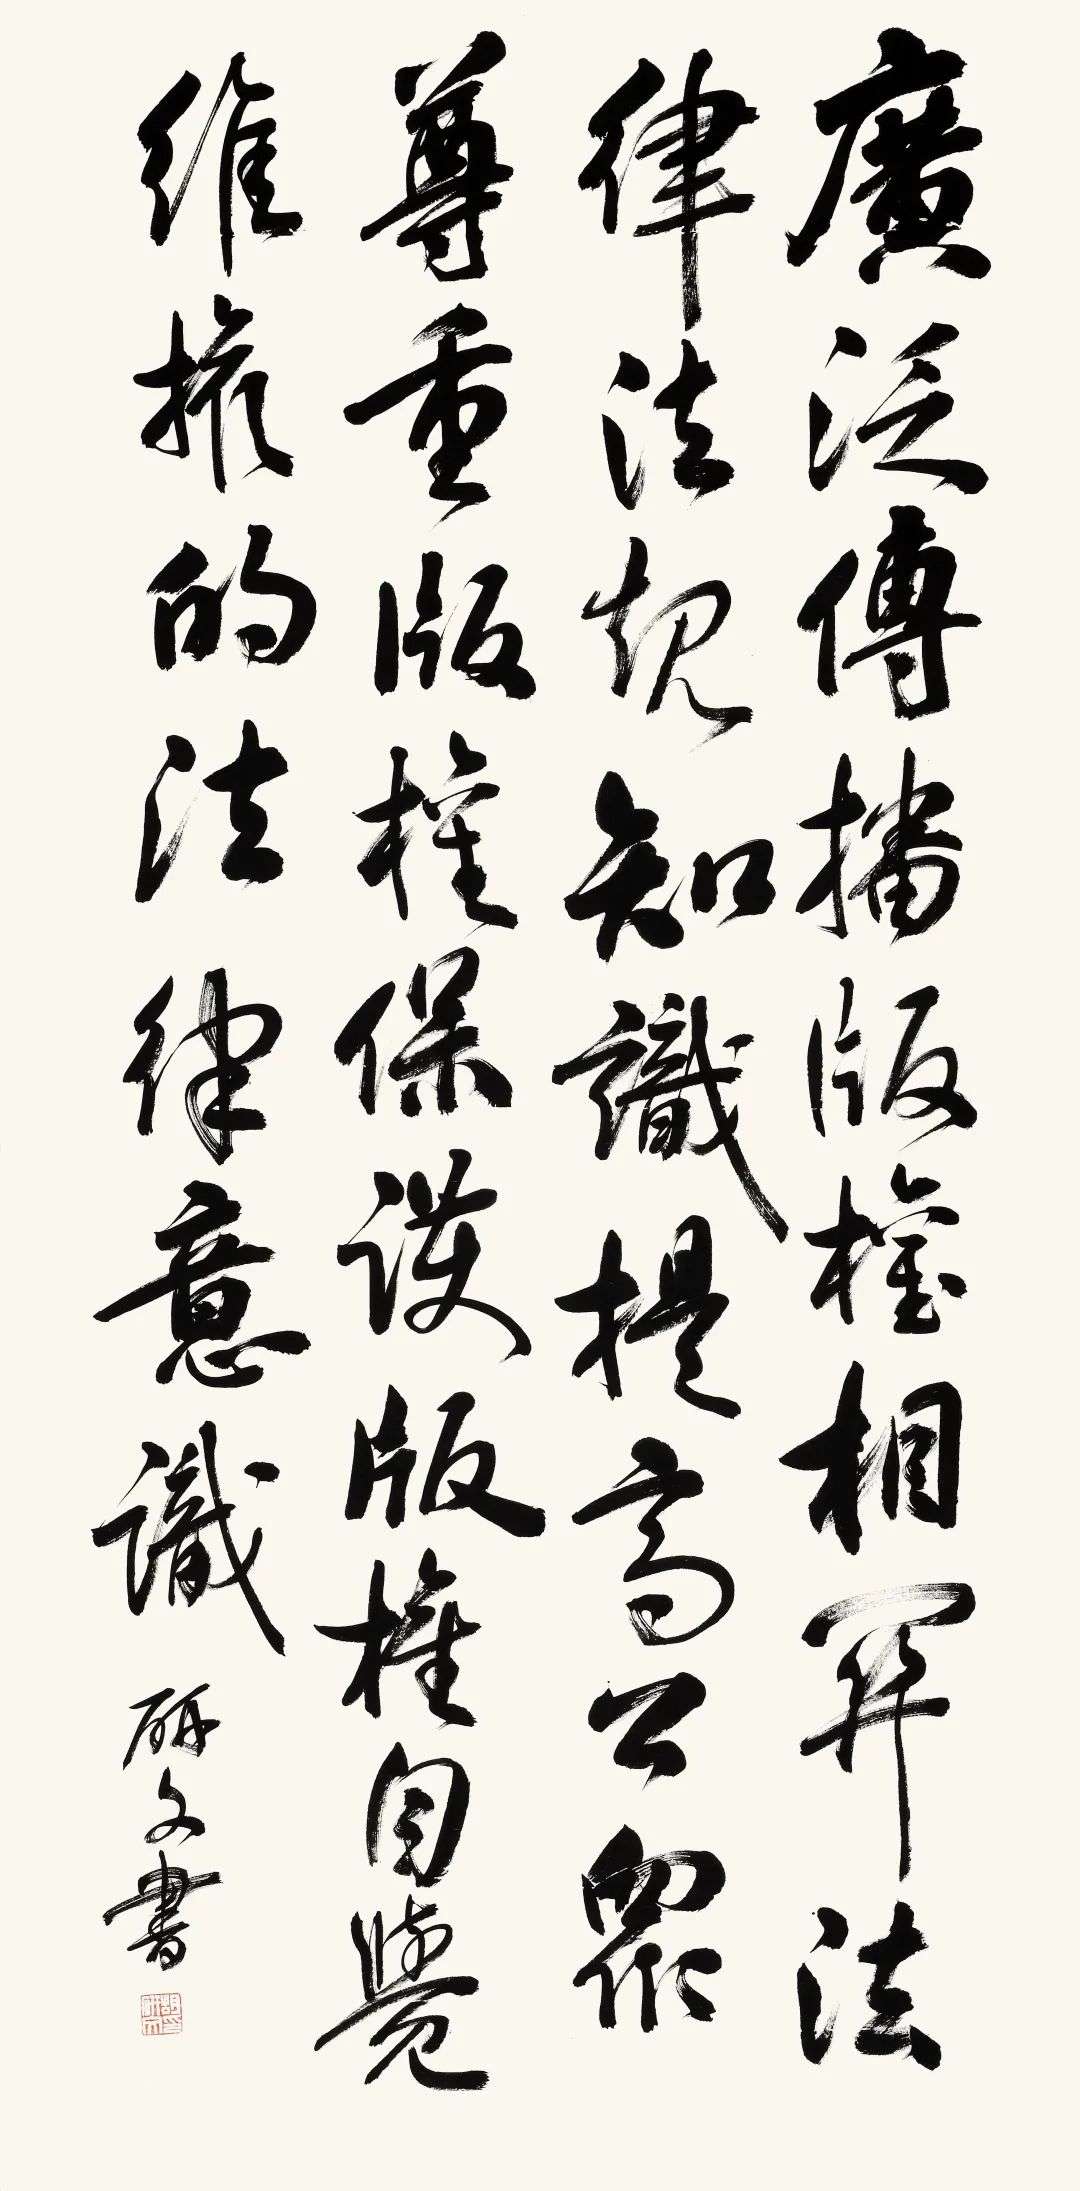 廣泛傳播版權相關法
律法規知識提高公眾
尊重版權保護版權自覺
維權的法律意識
研文書